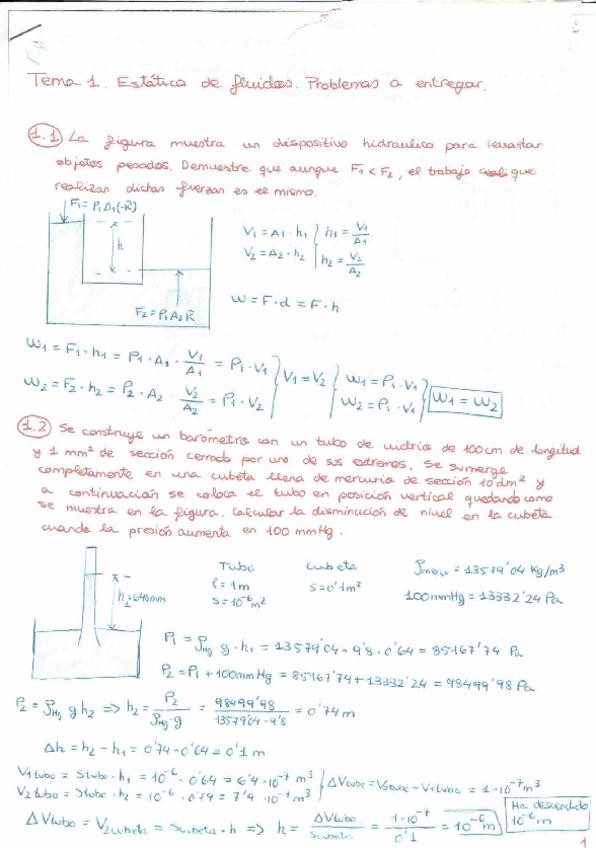 Tema 1. Estática de fluidos. Problemas a entregar.
1.1 La figura muestra un dispositivo hidraulico para levantar
objetos pesados. Demuestre que aunque F1 < F2, el trabajo que
realizan dichas fuerzas es el mismo.
F1 = P1A1(-k)
h
F2 = P1A2k
V1 = A1 · h1
V2 = A2 · h2
h1 = V1/A1
h2 = V2/A2
W = F · d = F · h
W1 = F1 · h1 = P1 · A1 · V1/A1 = P1 · V1
W2 = F2 · h2 = P2 · A2 · V2/A2 = P1 · V2
V1 = V2
W1 = P1 · V1
W2 = P1 · V1
W1 = W2
1.2 Se construye un barómetro con un tubo de vidrio de 100cm de longitud
y 1 mm² de sección cerrado por uno de sus extremos. Se sumerge
completamente en una cubeta llena de mercurio de sección 10 dm² y
a continuación se coloca el tubo en posición vertical quedando como
se muestra en la figura. Calcular la disminución de nivel en la cubeta
cuando la presión aumenta en 100 mmHg.
h1=640mm
Tubo
l = 1m
s = 10⁻⁶m²
Cubeta
s = 0'1m²
= 13579'04 kg/m³
100mmHg = 13332'24 Pa
P1 = ρHg g · h1 = 13579'04 · 9'8 · 0'64 = 85167'74 Pa
P2 = P1 + 100mmHg = 85167'74 + 13332'24 = 98499'98 Pa
P2 = ρHg g h2 => h2 = P2/ρHg · g = 98499'98/13579'04 · 9'8 = 0'74m
Δh = h2 - h1 = 0'74 - 0'64 = 0'1 m
V1tubo = Stubo · h1 = 10⁻⁶ · 0'64 = 6'4 · 10⁻⁷ m³
V2tubo = Stubo · h2 = 10⁻⁶ · 0'74 = 7'4 · 10⁻⁷ m³
ΔVtubo = V2tubo - V1tubo = 1 · 10⁻⁷ m³
ΔVtubo = V2cubeta = Scubeta · h => h = ΔVtubo/Scubeta = 1 · 10⁻⁷/0'1 = 10⁻⁶ m
Ha descendido
10⁻⁶ m
1